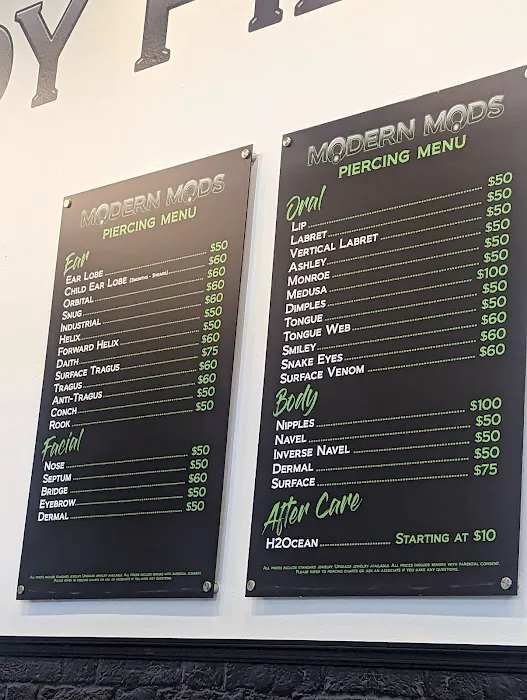 DY PIE
MODERN MODS
PIERCING MENU
Ear
EAR LOBE $50
CHILD EAR LOBE $60
ORBITAL $60
SNUG $60
INDUSTRIAL $60
HELIX $50
FORWARD HELIX $50
DAITH $60
SURFACE TRAGUS $75
TRAGUS $60
ANTI-TRAGUS $60
CONCH $50
ROOK $50
Facial
NOSE $50
SEPTUM $50
BRIDGE $60
EYEBROW $50
DERMAL $50
ALL PRICES INCLUDE STANDARD JEWELRY. UPGRADE JEWELRY AVAILABLE. ALL PRICES INCLUDE MINORS WITH PARENTAL CONSENT.
PLEASE REFER TO PIERCING CHARTS OR ASK AN ASSOCIATE IF YOU HAVE ANY QUESTIONS.
MODERN MODS
PIERCING MENU
Oral
LIP $50
LABRET $50
VERTICAL LABRET $50
ASHLEY $50
MONROE $50
MEDUSA $50
DIMPLES $100
TONGUE $50
TONGUE WEB $50
SMILEY $60
SNAKE EYES $60
SURFACE VENOM $60
Body
NIPPLES $100
NAVEL $50
INVERSE NAVEL $50
DERMAL $50
SURFACE $75
After Care
H2OCEAN STARTING AT $10
ALL PRICES INCLUDE STANDARD JEWELRY. UPGRADE JEWELRY AVAILABLE. ALL PRICES INCLUDE MINORS WITH PARENTAL CONSENT.
PLEASE REFER TO PIERCING CHARTS OR ASK AN ASSOCIATE IF YOU HAVE ANY QUESTIONS.